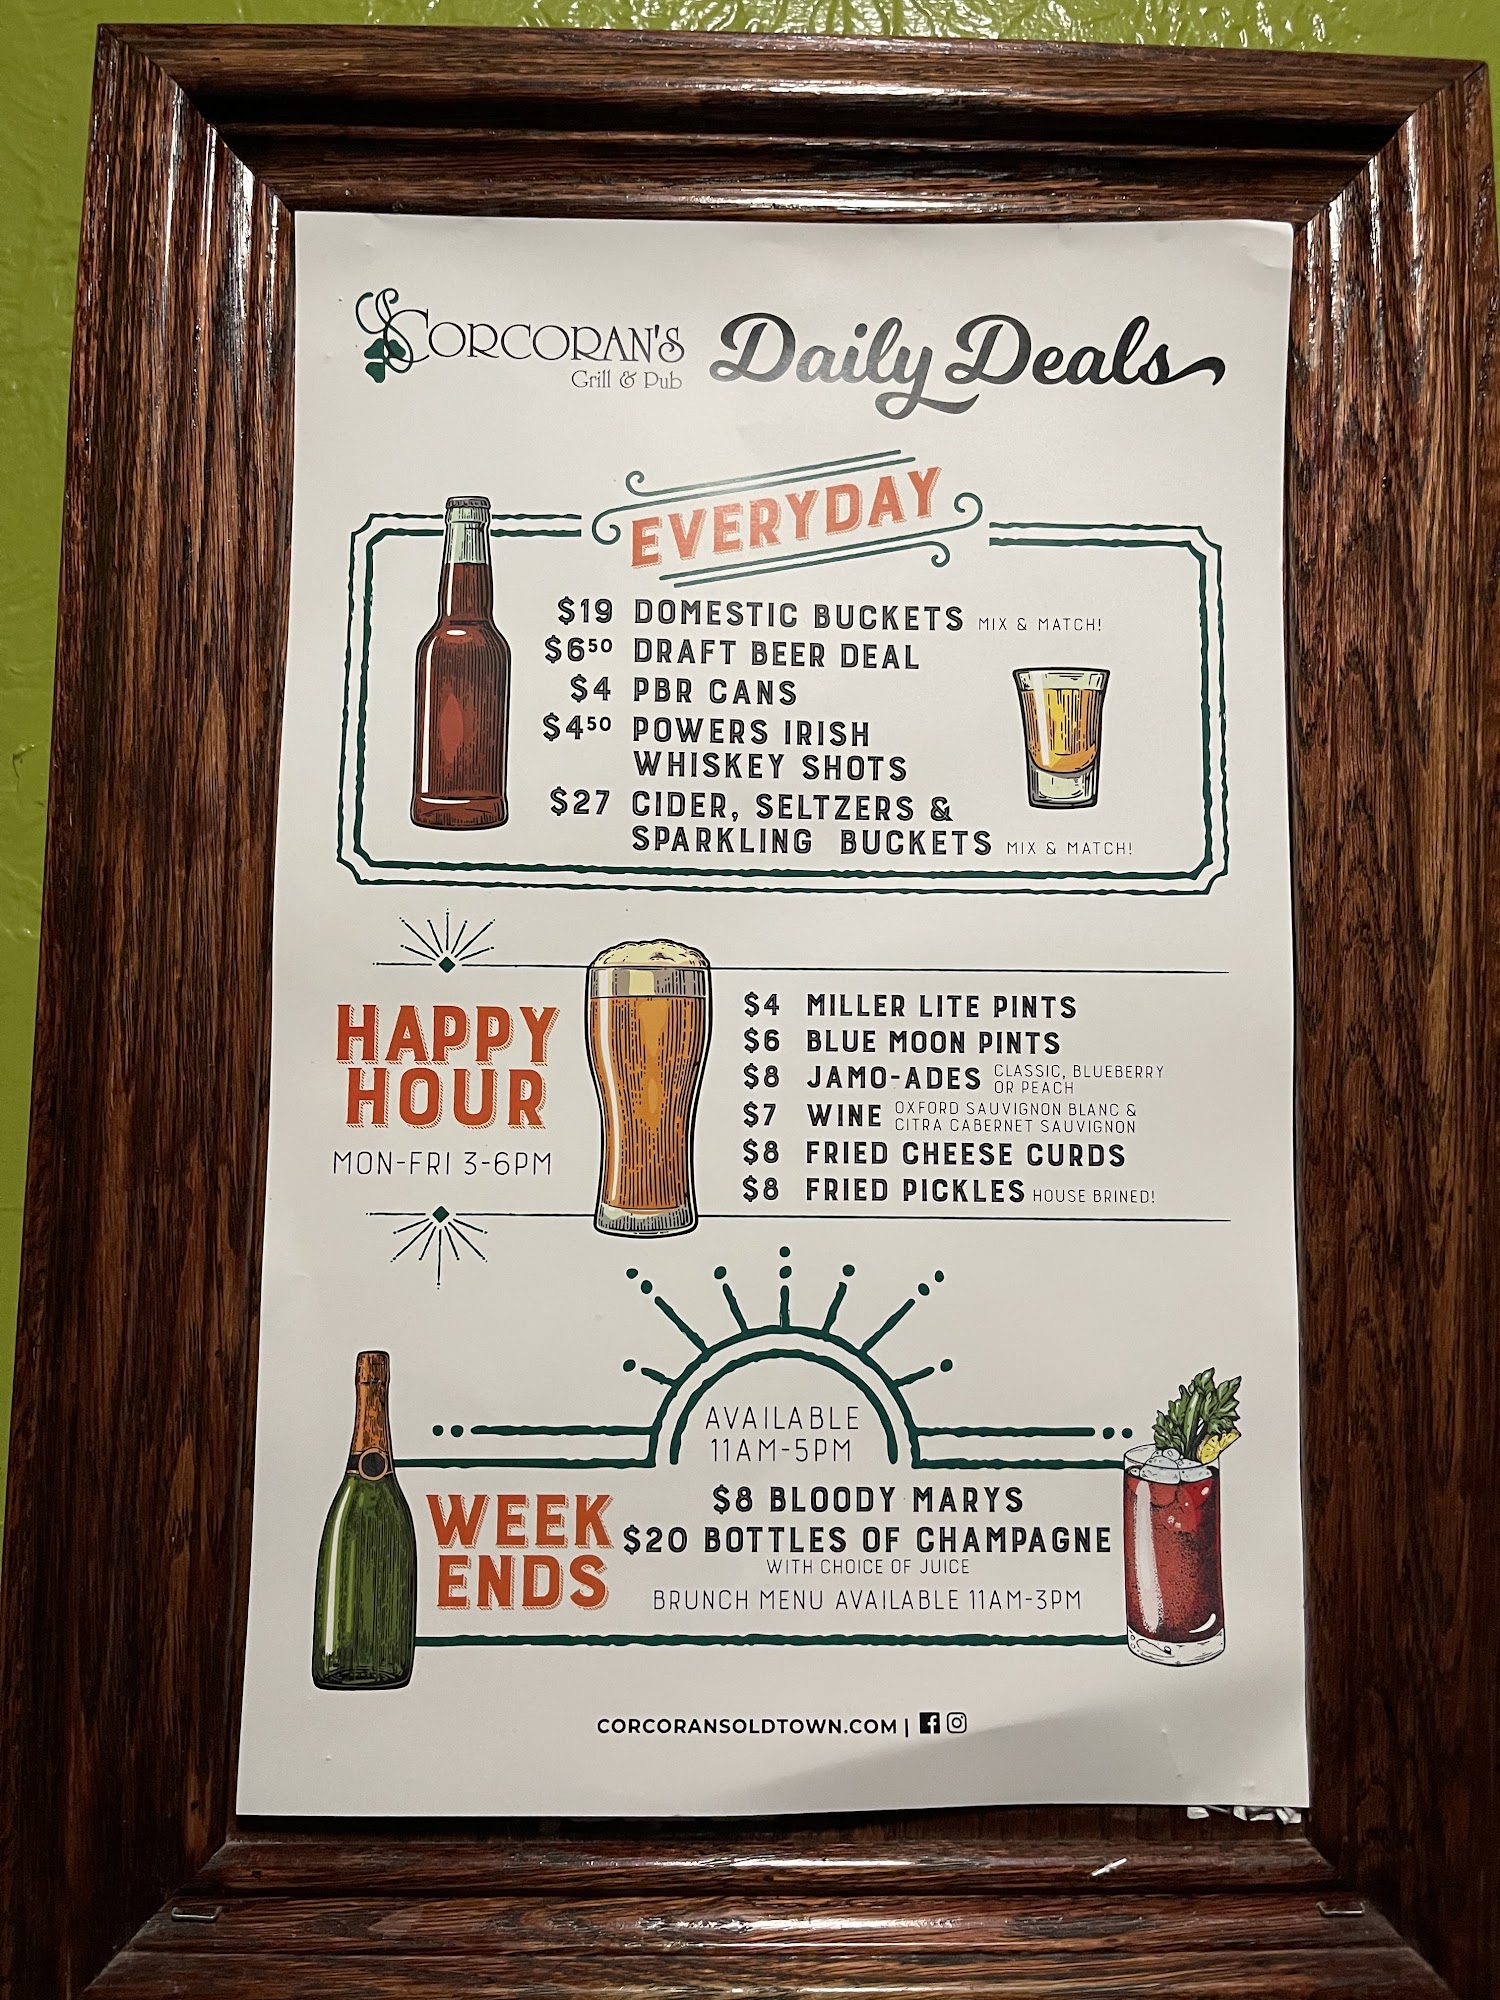 CORCORAN'S
Grill & Pub
Daily Deals
EVERYDAY
$19 DOMESTIC BUCKETS MIX & MATCH!
$6⁵⁰ DRAFT BEER DEAL
$4 PBR CANS
$4⁵⁰ POWERS IRISH
WHISKEY SHOTS
$27 CIDER, SELTZERS &
SPARKLING BUCKETS MIX & MATCH!
HAPPY
HOUR
MON-FRI 3-6PM
$4 MILLER LITE PINTS
$6 BLUE MOON PINTS
$8 JAMO-ADES CLASSIC, BLUEBERRY
OR PEACH
$7 WINE OXFORD SAUVIGNON BLANC &
CITRA CABERNET SAUVIGNON
$8 FRIED CHEESE CURDS
$8 FRIED PICKLES HOUSE BRINED!
AVAILABLE
11AM-5PM
WEEK
ENDS
$8 BLOODY MARYS
$20 BOTTLES OF CHAMPAGNE
WITH CHOICE OF JUICE
BRUNCH MENU AVAILABLE 11AM-3PM
CORCORANSOLDTOWN.COM |